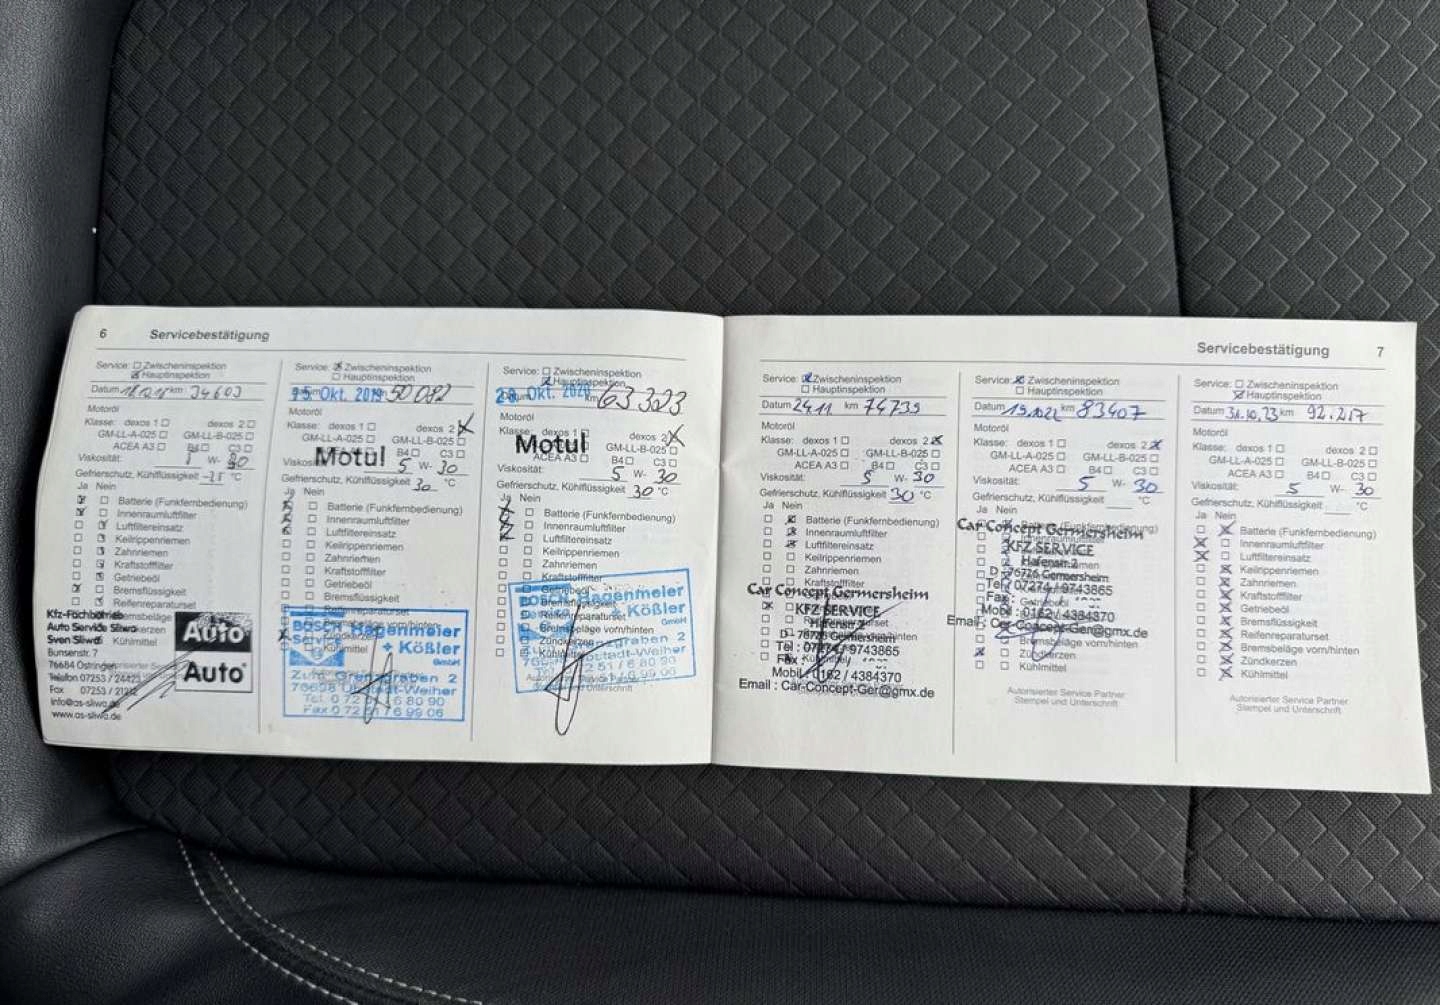 6 Servicebestätigung
Service: Zwischeninspektion
Hauptinspektion
Datum km: 34603
Motoröl
Klasse: dexos 1 dexos 2
GM-LL-A-025 GM-LL-B-025
ACEA A3 B4 C3
Viskosität: W- 30
Gefrierschutz, Kühlflüssigkeit °C
Ja Nein
Batterie (Funkfernbedienung)
Innenraumluftfilter
Luftfiltereinsatz
Keilrippenriemen
Zahnriemen
Kraftstofffilter
Getriebeöl
Bremsflüssigkeit
Reifenreparaturset
Kfz-Fachbetrieb
Auto Service Sliwa
Sven Sliwa Kühlmittel
Bunsenstr. 7
76684 Östringen
Telefon 07253 /
Fax 07253 /
info@as-sliwa.de
www.as-sliwa.de
Auto
Auto
Service: Zwischeninspektion
Hauptinspektion
15. Okt. 2019 50 082
Motoröl
Klasse: dexos 1 dexos 2
GM-LL-A-025 GM-LL-B-025
Motul B4 C3
5 W- 30
Gefrierschutz, Kühlflüssigkeit 30 °C
Ja Nein
Batterie (Funkfernbedienung)
Innenraumluftfilter
Luftfiltereinsatz
Keilrippenriemen
Zahnriemen
Kraftstofffilter
Getriebeöl
Bremsflüssigkeit
Reifenreparaturset
Bosch Hagenmeier
Service + Kößler
GmbH
Zum Grengraben 2
76698 Ubstadt-Weiher
Service: Zwischeninspektion
Hauptinspektion
Okt. 2020 km 63323
Motoröl
Klasse: dexos 1 dexos 2
Motul GM-LL-B-025
ACEA A3 B4 C3
Viskosität: 5 W- 30
Gefrierschutz, Kühlflüssigkeit 30 °C
Ja Nein
Batterie (Funkfernbedienung)
Innenraumluftfilter
Luftfiltereinsatz
Keilrippenriemen
Zahnriemen
Kraftstofffilter
Bosch Hagenmeier
+ Kößler
GmbH
Servicebestätigung 7
Service: Zwischeninspektion
Hauptinspektion
Datum 24.11 km 74735
Motoröl
Klasse: dexos 1 dexos 2
GM-LL-A-025 GM-LL-B-025
ACEA A3 B4 C3
Viskosität: 5 W- 30
Gefrierschutz, Kühlflüssigkeit 30 °C
Ja Nein
Batterie (Funkfernbedienung)
Innenraumluftfilter
Luftfiltereinsatz
Keilrippenriemen
Zahnriemen
Kraftstofffilter
Car Concept Germersheim
KFZ SERVICE
Hafenstr. 2
D - 76726 Germersheim
Tel : 07274 / 9743865
Fax :
Mobil : 0162 / 4384370
Email : Car-Concept-Ger@gmx.de
Service: Zwischeninspektion
Hauptinspektion
Datum km 83407
Motoröl
Klasse: dexos 1 dexos 2
GM-LL-A-025 GM-LL-B-025
ACEA A3 B4 C3
Viskosität: 5 W- 30
Gefrierschutz, Kühlflüssigkeit °C
Ja Nein
Car Concept Germersheim
KFZ SERVICE
Hafenstr. 2
D - 76726 Germersheim
Tel : 07274 / 9743865
Fax :
Mobil : 0162 / 4384370
Email : Car-Concept-Ger@gmx.de
Bremsbeläge vorn/hinten
Zündkerzen
Kühlmittel
Autorisierter Service Partner
Stempel und Unterschrift
Service: Zwischeninspektion
Hauptinspektion
Datum 31.10.23 km 92.217
Motoröl
Klasse: dexos 1 dexos 2
GM-LL-A-025 GM-LL-B-025
ACEA A3 B4 C3
Viskosität: 5 W- 30
Gefrierschutz, Kühlflüssigkeit °C
Ja Nein
Batterie (Funkfernbedienung)
Innenraumluftfilter
Luftfiltereinsatz
Keilrippenriemen
Zahnriemen
Kraftstofffilter
Getriebeöl
Bremsflüssigkeit
Reifenreparaturset
Bremsbeläge vorn/hinten
Zündkerzen
Kühlmittel
Autorisierter Service Partner
Stempel und Unterschrift